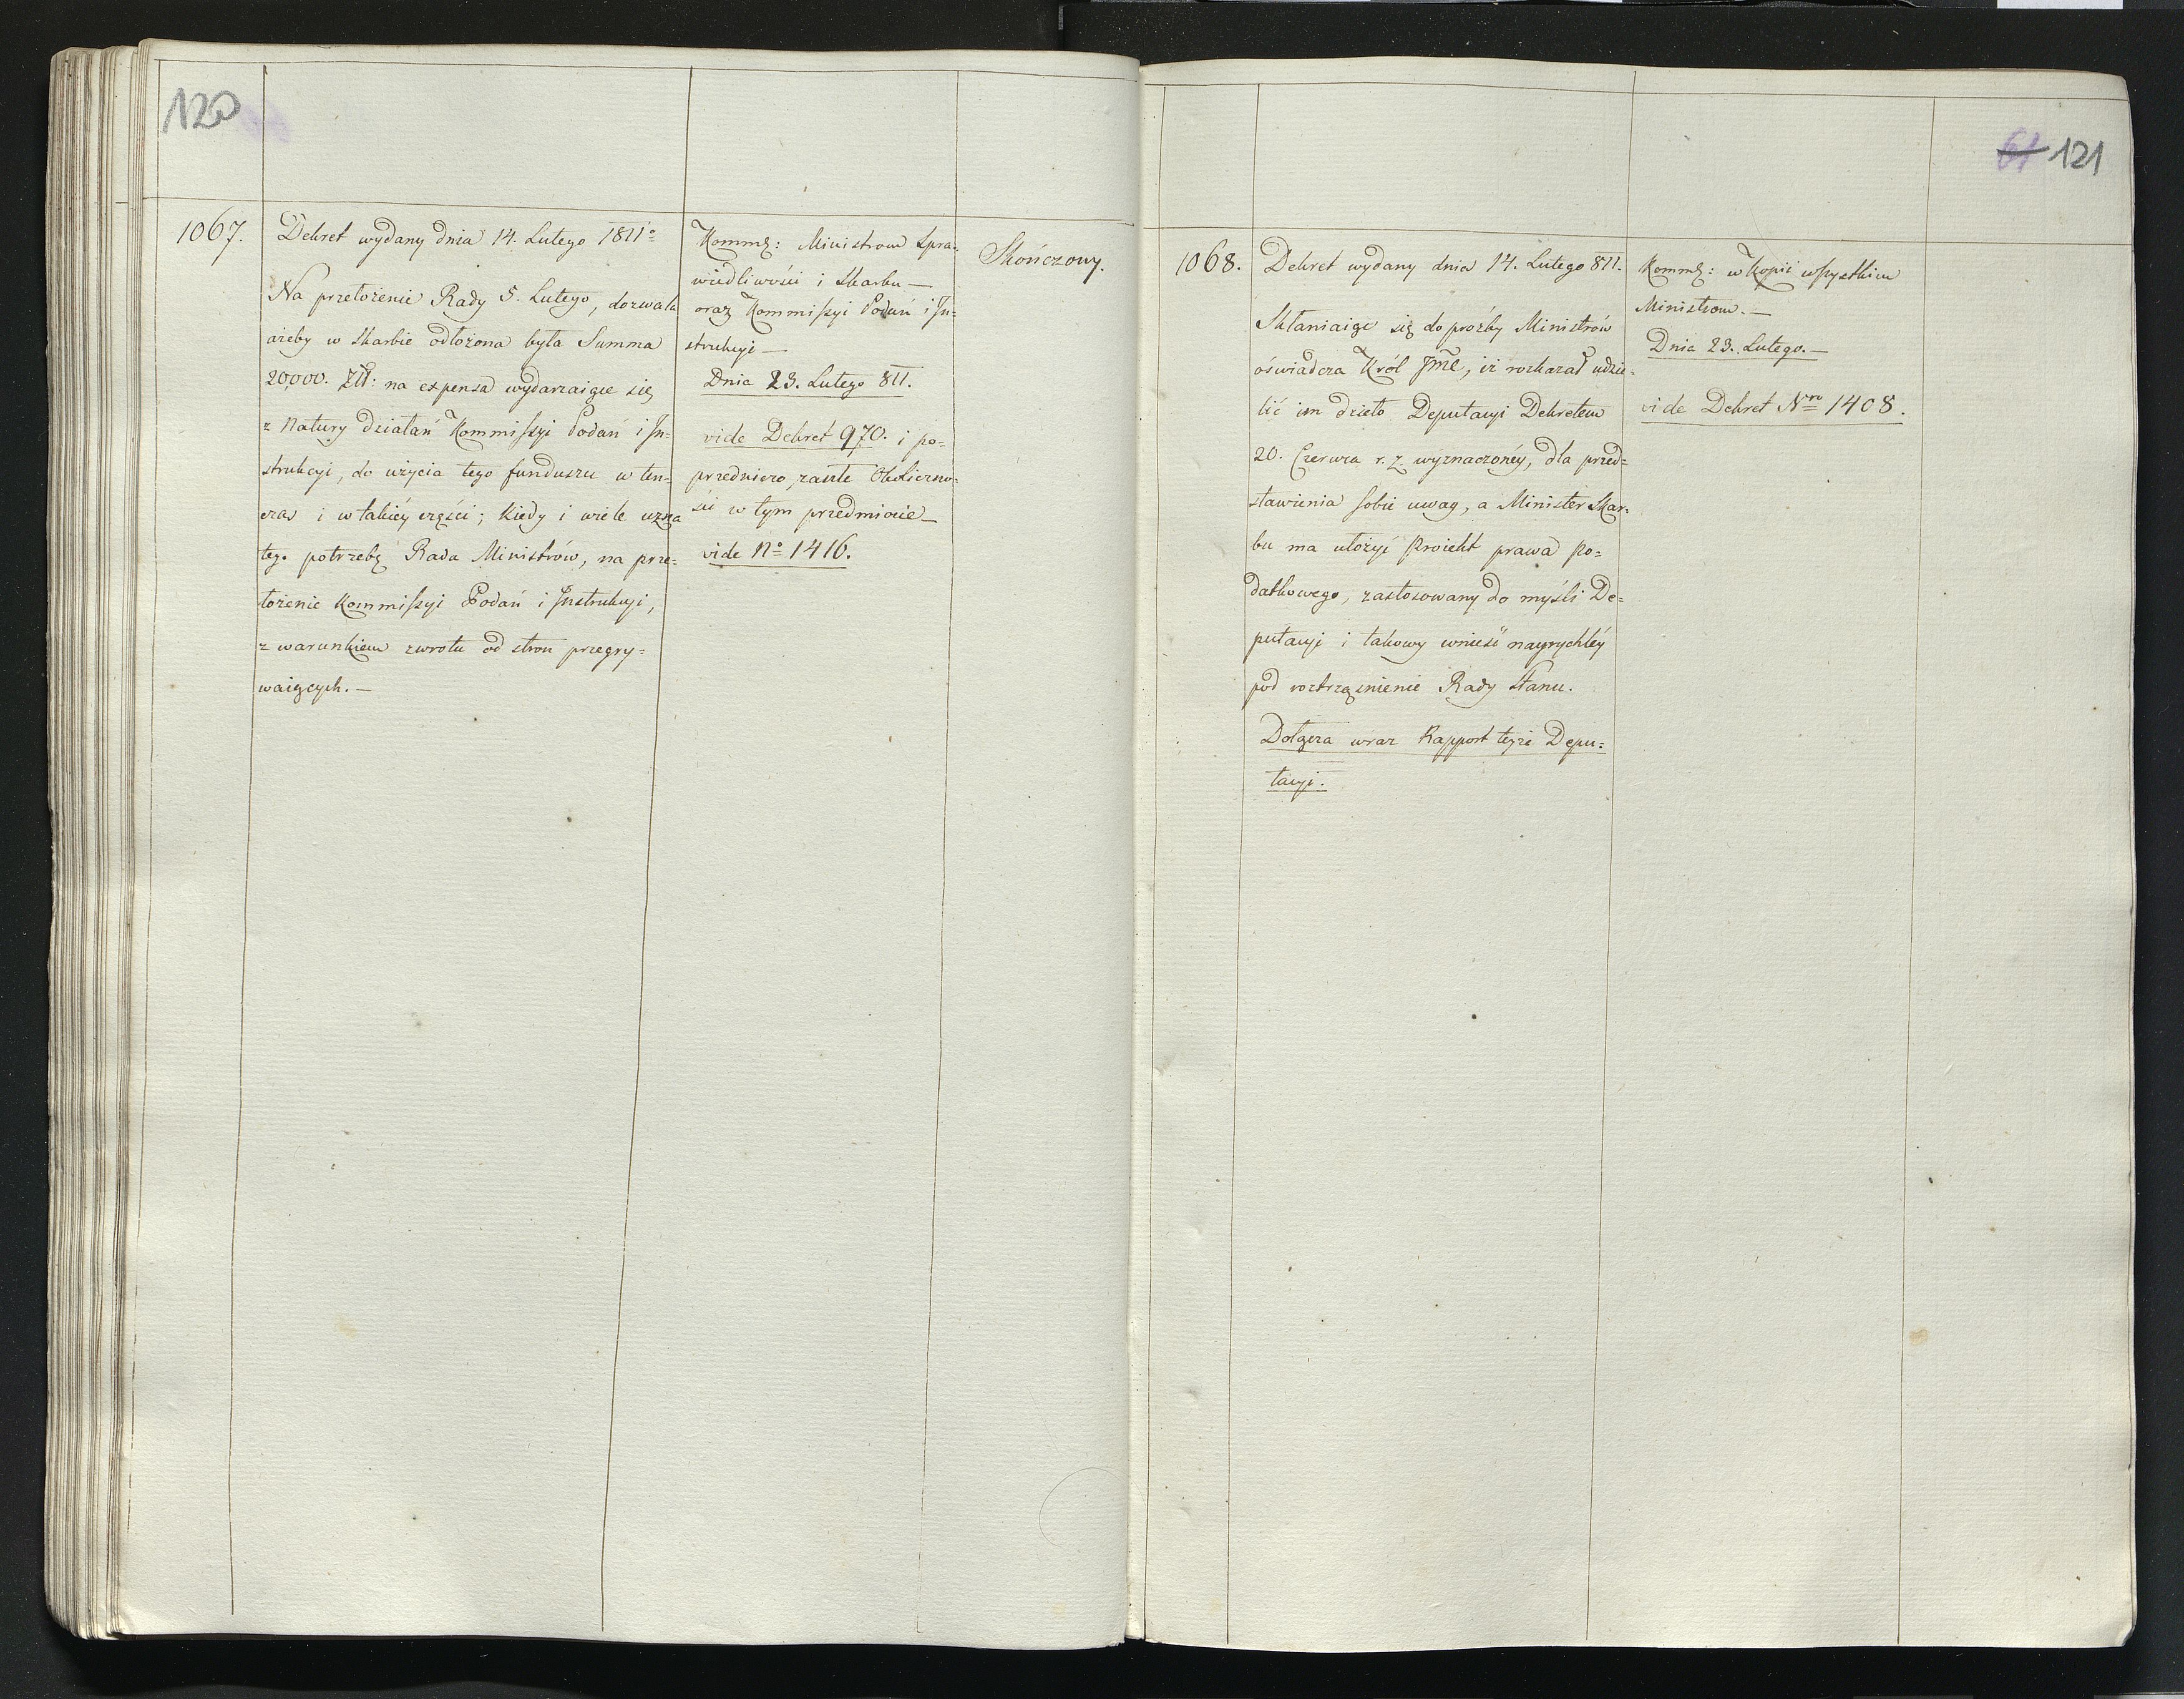 120
1067.
Dekret wydany dnia 14. Lutego 1811o
Na przełożenie Rady 5. Lutego, dozwala
ażeby w Skarbie odłożona była Summa
20,000. Złł: na expensa wydarzaiące się
z Natury działań Kommissyi Podań i In=
strukcyi, do użycia tego funduszu w ten=
czas i w takiéy części; kiedy i wiele uzna
tego potrzebę Rada Ministrów, na prze=
łożenie Kommissyi Podań i Instrukcyi,
z warunkiem zwrotu od stron przegry=
waiących.—
Kommę: Ministrom Spra=
wiedliwości i Skarbu—
oraz Kommissyi Podań i In=
strukcyi—
Dnia 23. Lutego 811.
vide Dekret 970. i po=
przedniczo zaszłe Okoliczno=
ści w tym przedmiocie—
vide No 1416.
Skończony.
61 121
1068.
Dekret wydany dnia 14. Lutego 811.
Skłaniaiąc się do proźby Ministrów
oświadcza Król JMć, iż rozkazał udzie=
lić im dzieło Deputacyi Dekretem
20. Czerwca r. z. wyznaczonéy, dla przed=
stawienia sobie uwag, a Minister Skar=
bu ma ułożyć Proiekt prawa Po=
datkowego, zastosowany do myśli De=
putacyi i takowy wnieść nayrychléy
pod roztrząsnienie Rady Stanu.
Dołącza wraz Rapport teyże Depu=
tacyi.
Kommę: w Kopii wszystkim
Ministrom.—
Dnia 23. Lutego.—
vide Dekret Nro 1408.